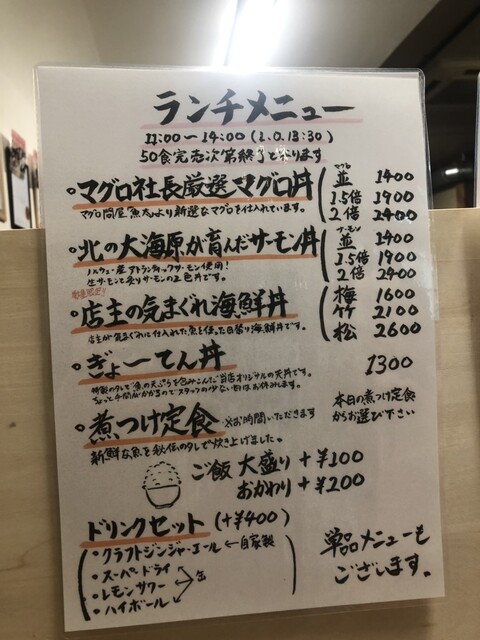 ランチメニュー
11:00〜14:00(L.O.13:30)
50食完売次第終了と
なります
・マグロ社長厳選マグロ丼
マグロ 並 1400
1.5倍 1900
2倍 2400
マグロ問屋 より新鮮なマグロを仕入れています。
・北の大海原が育んだサーモン丼
サーモン 並 1400
1.5倍 1900
2倍 2400
ノルウェー産アトランティックサーモン使用!
生サーモンと炙りサーモンの2色丼です。
数量限定!!
・店主の気まぐれ海鮮丼
梅 1600
竹 2100
松 2600
店主が気まぐれに仕入れた魚を使った日替り海鮮丼です。
・ぎょーてん丼 1300
特製のタレで魚の天ぷらを包みこんだ当店オリジナルの天丼です。
ちょっと手間がかかるのでスタッフの少ない日はお休みします。
・煮つけ定食 ※お時間いただきます
本日の煮つけ定食
からお選び下さい
新鮮な魚を秘伝のタレで炊き上げました。
ご飯 大盛り +¥100
おかわり +¥200
ドリンクセット (+¥400)
・クラフトジンジャーエール ← 自家製
・スーパードライ
・レモンサワー
・ハイボール
缶
単品メニューも
ございます。